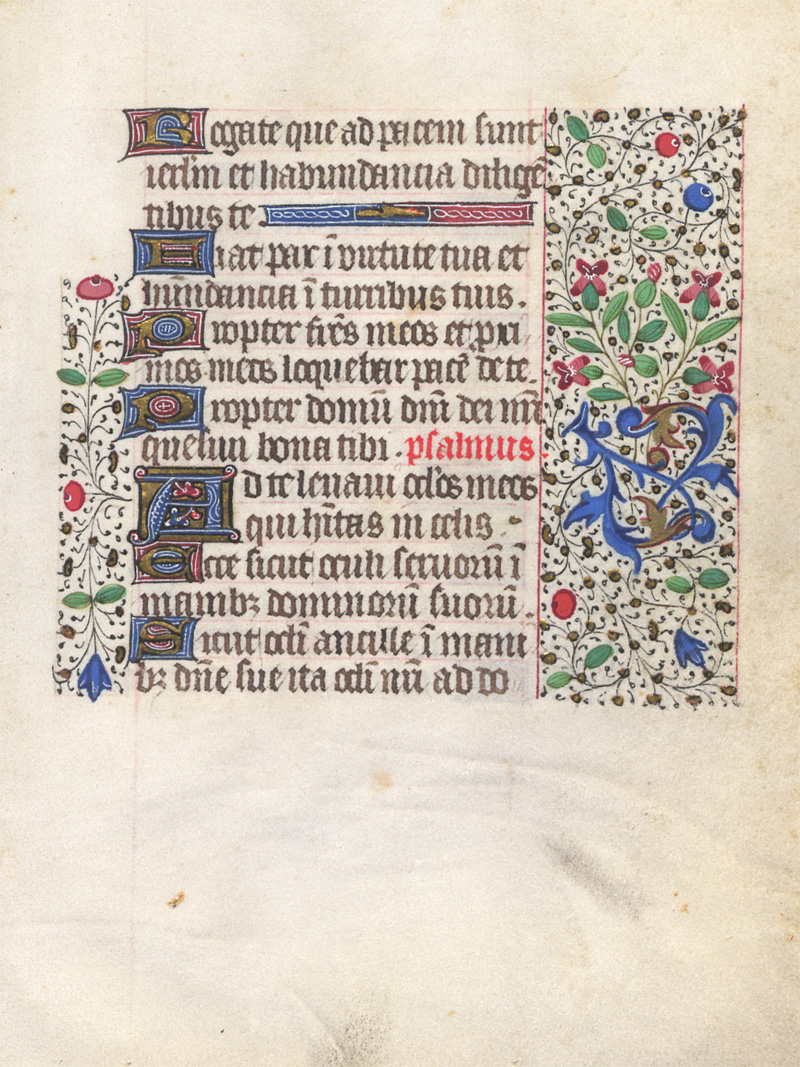 Rogate que ad pacem sunt
ierl̄m et habundancia diligē
tibus te.
Fiat pax ī virtute tua et
hūndancia ī turribus tuis.
Propter frēs meos et pxi
mos meos loquebar pacē de te.
Propter domū dnī dei nrī
quesiui bona tibi. psalmus.
Ad te leuaui ocl̄os meos
qui hītas in celis.
Ecce sicut oculi seruorū ī
manibꝫ dominorū suorū.
Sicut ocl̄i ancille ī mani
bꝫ dnē sue ita ocl̄i nrī ad do